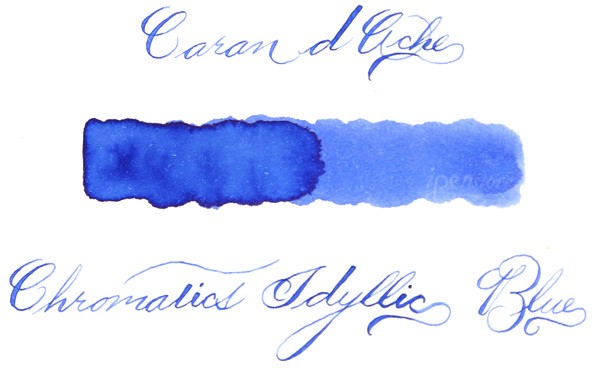 Caran d'Ache
Chromatics Idyllic Blue